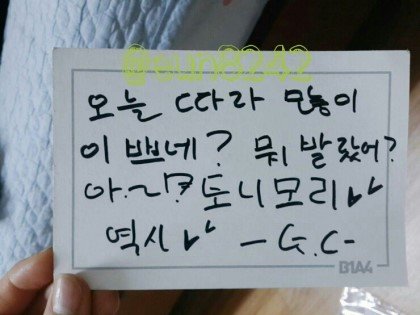 @sun8242
오늘 따라 많이
이쁘네? 뭐 발랐어?
아.~!? 토니모리✓✓
역시✓✓ - G.C-
B1A4